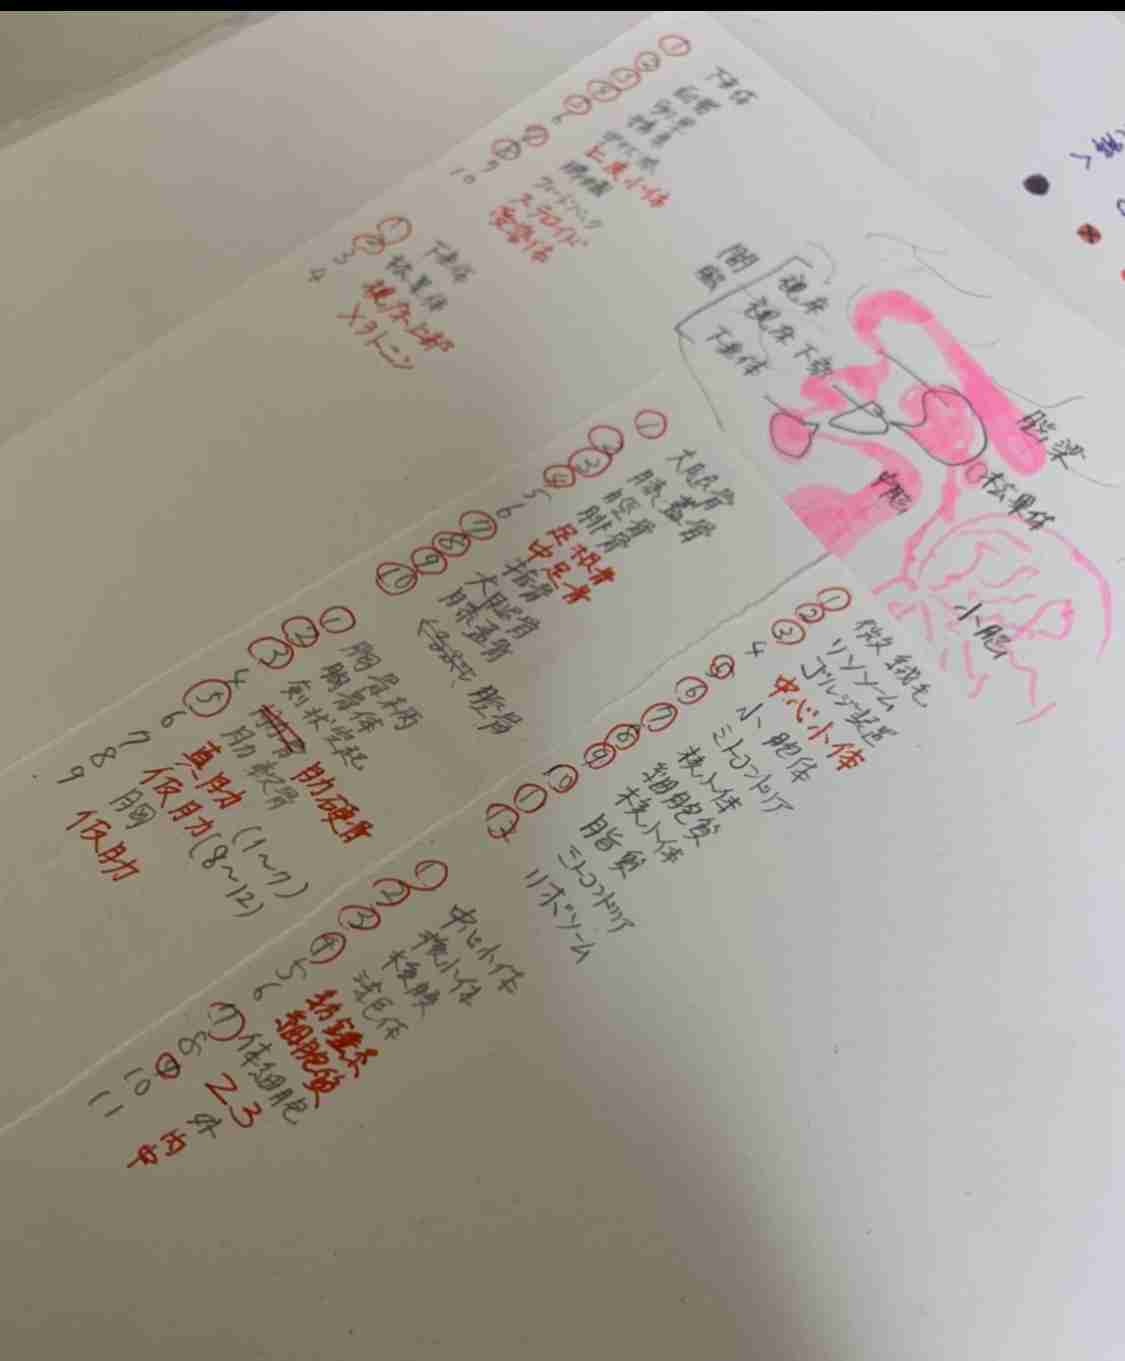 ①
②
③
④
⑤
6
⑦
⑧
9
10
下垂体
上皮小体
フィードバック
ステロイド
受容体
①
②
3
4
下垂体
松果体
視床上部
メラトニン
間脳
視床
視床下部
下垂体
脳梁
松果体
中脳
小脳
① 大腿骨
② 膝蓋骨
③ 脛骨
④ 腓骨
5 足根骨
6 中足骨
⑦ 指骨
⑧ 大腿骨
⑨ 膝蓋骨
⑩ 脛骨
① 胸骨柄
② 胸骨体
③ 剣状突起
4 肋硬骨
⑤ 肋軟骨
6 真肋 (1~7)
7 仮肋 (8~12)
8 胸
9 仮肋
① 微絨毛
② リソソーム
③ ゴルジ装置
4 中心小体
⑤ 小胞体
⑥ ミトコンドリア
⑦ 核小体
⑧ 細胞質
⑨ 核小体
⑩ 脂質
⑪ ミトコンドリア
⑫ リボソーム
① 中心小体
② 核小体
③ 核膜
④ 染色体
5 紡錘糸
6 細胞質
⑦ 体細胞
8 23
⑨ 外
10 内
11 中